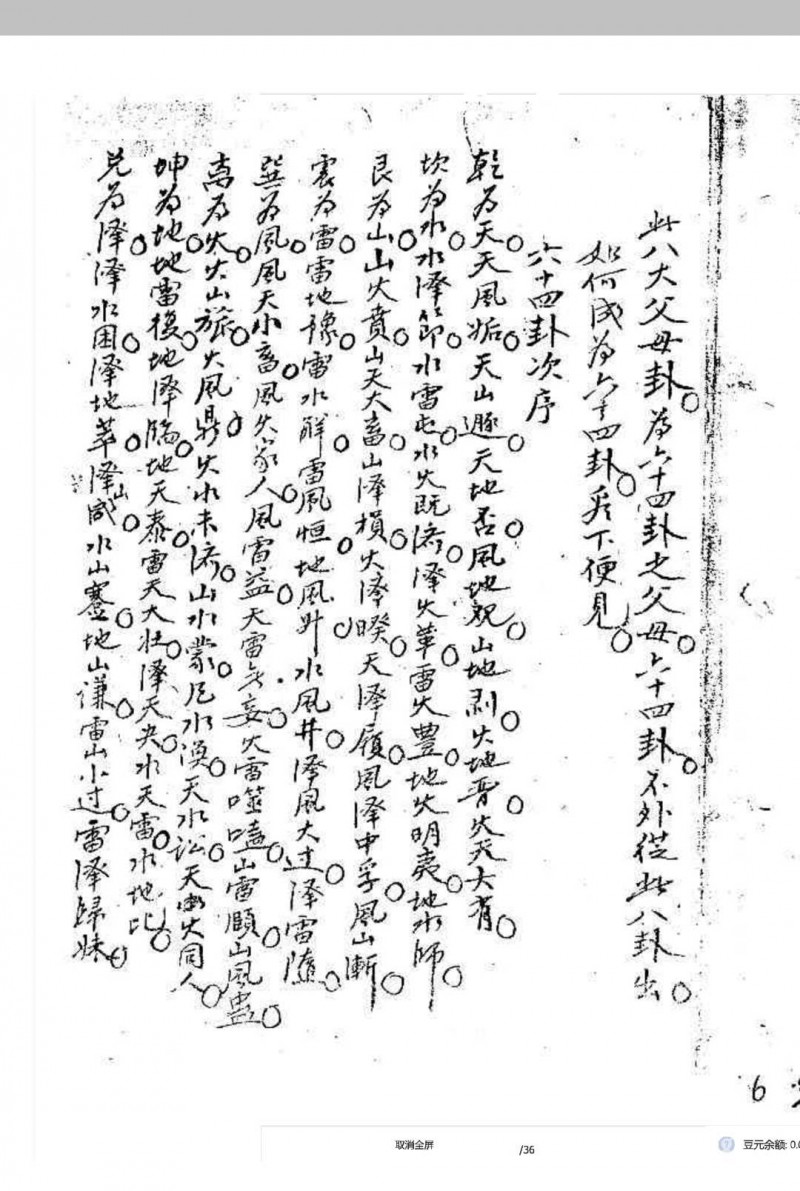 此八大父母卦。為六十四卦之父母。六十四卦。不外從此八卦出。
如何成為六十四卦。看下便見。
六十四卦次序
乾為天。天風姤。天山遯。天地否。風地観。山地剥。火地晋。火天大有。
坎為水。水澤節。水雷屯。水火既济。澤火革。雷火豊。地火明夷。地水師。
艮為山。山火賁。山天大畜。山澤損。火澤睽。天澤履。風澤中孚。風山漸。
震為雷。雷地豫。雷水解。雷風恒。地風升。水風井。澤風大过。澤雷随。
巽為風。風天小畜。風火家人。風雷益。天雷无妄。火雷噬嗑。山雷頤。山風蛊。
离為火。火山旅。火風鼎。火水未济。山水蒙。风水渙。天水訟。天火同人。
坤為地。地雷復。地澤臨。地天泰。雷天大壮。澤天夬。水天雷。水地比。
兑為澤。澤水困。澤地萃。澤山咸。水山蹇。地山谦。雷山小过。雷澤歸妹。
6
取消全屏
/36
豆元余额: 0.0